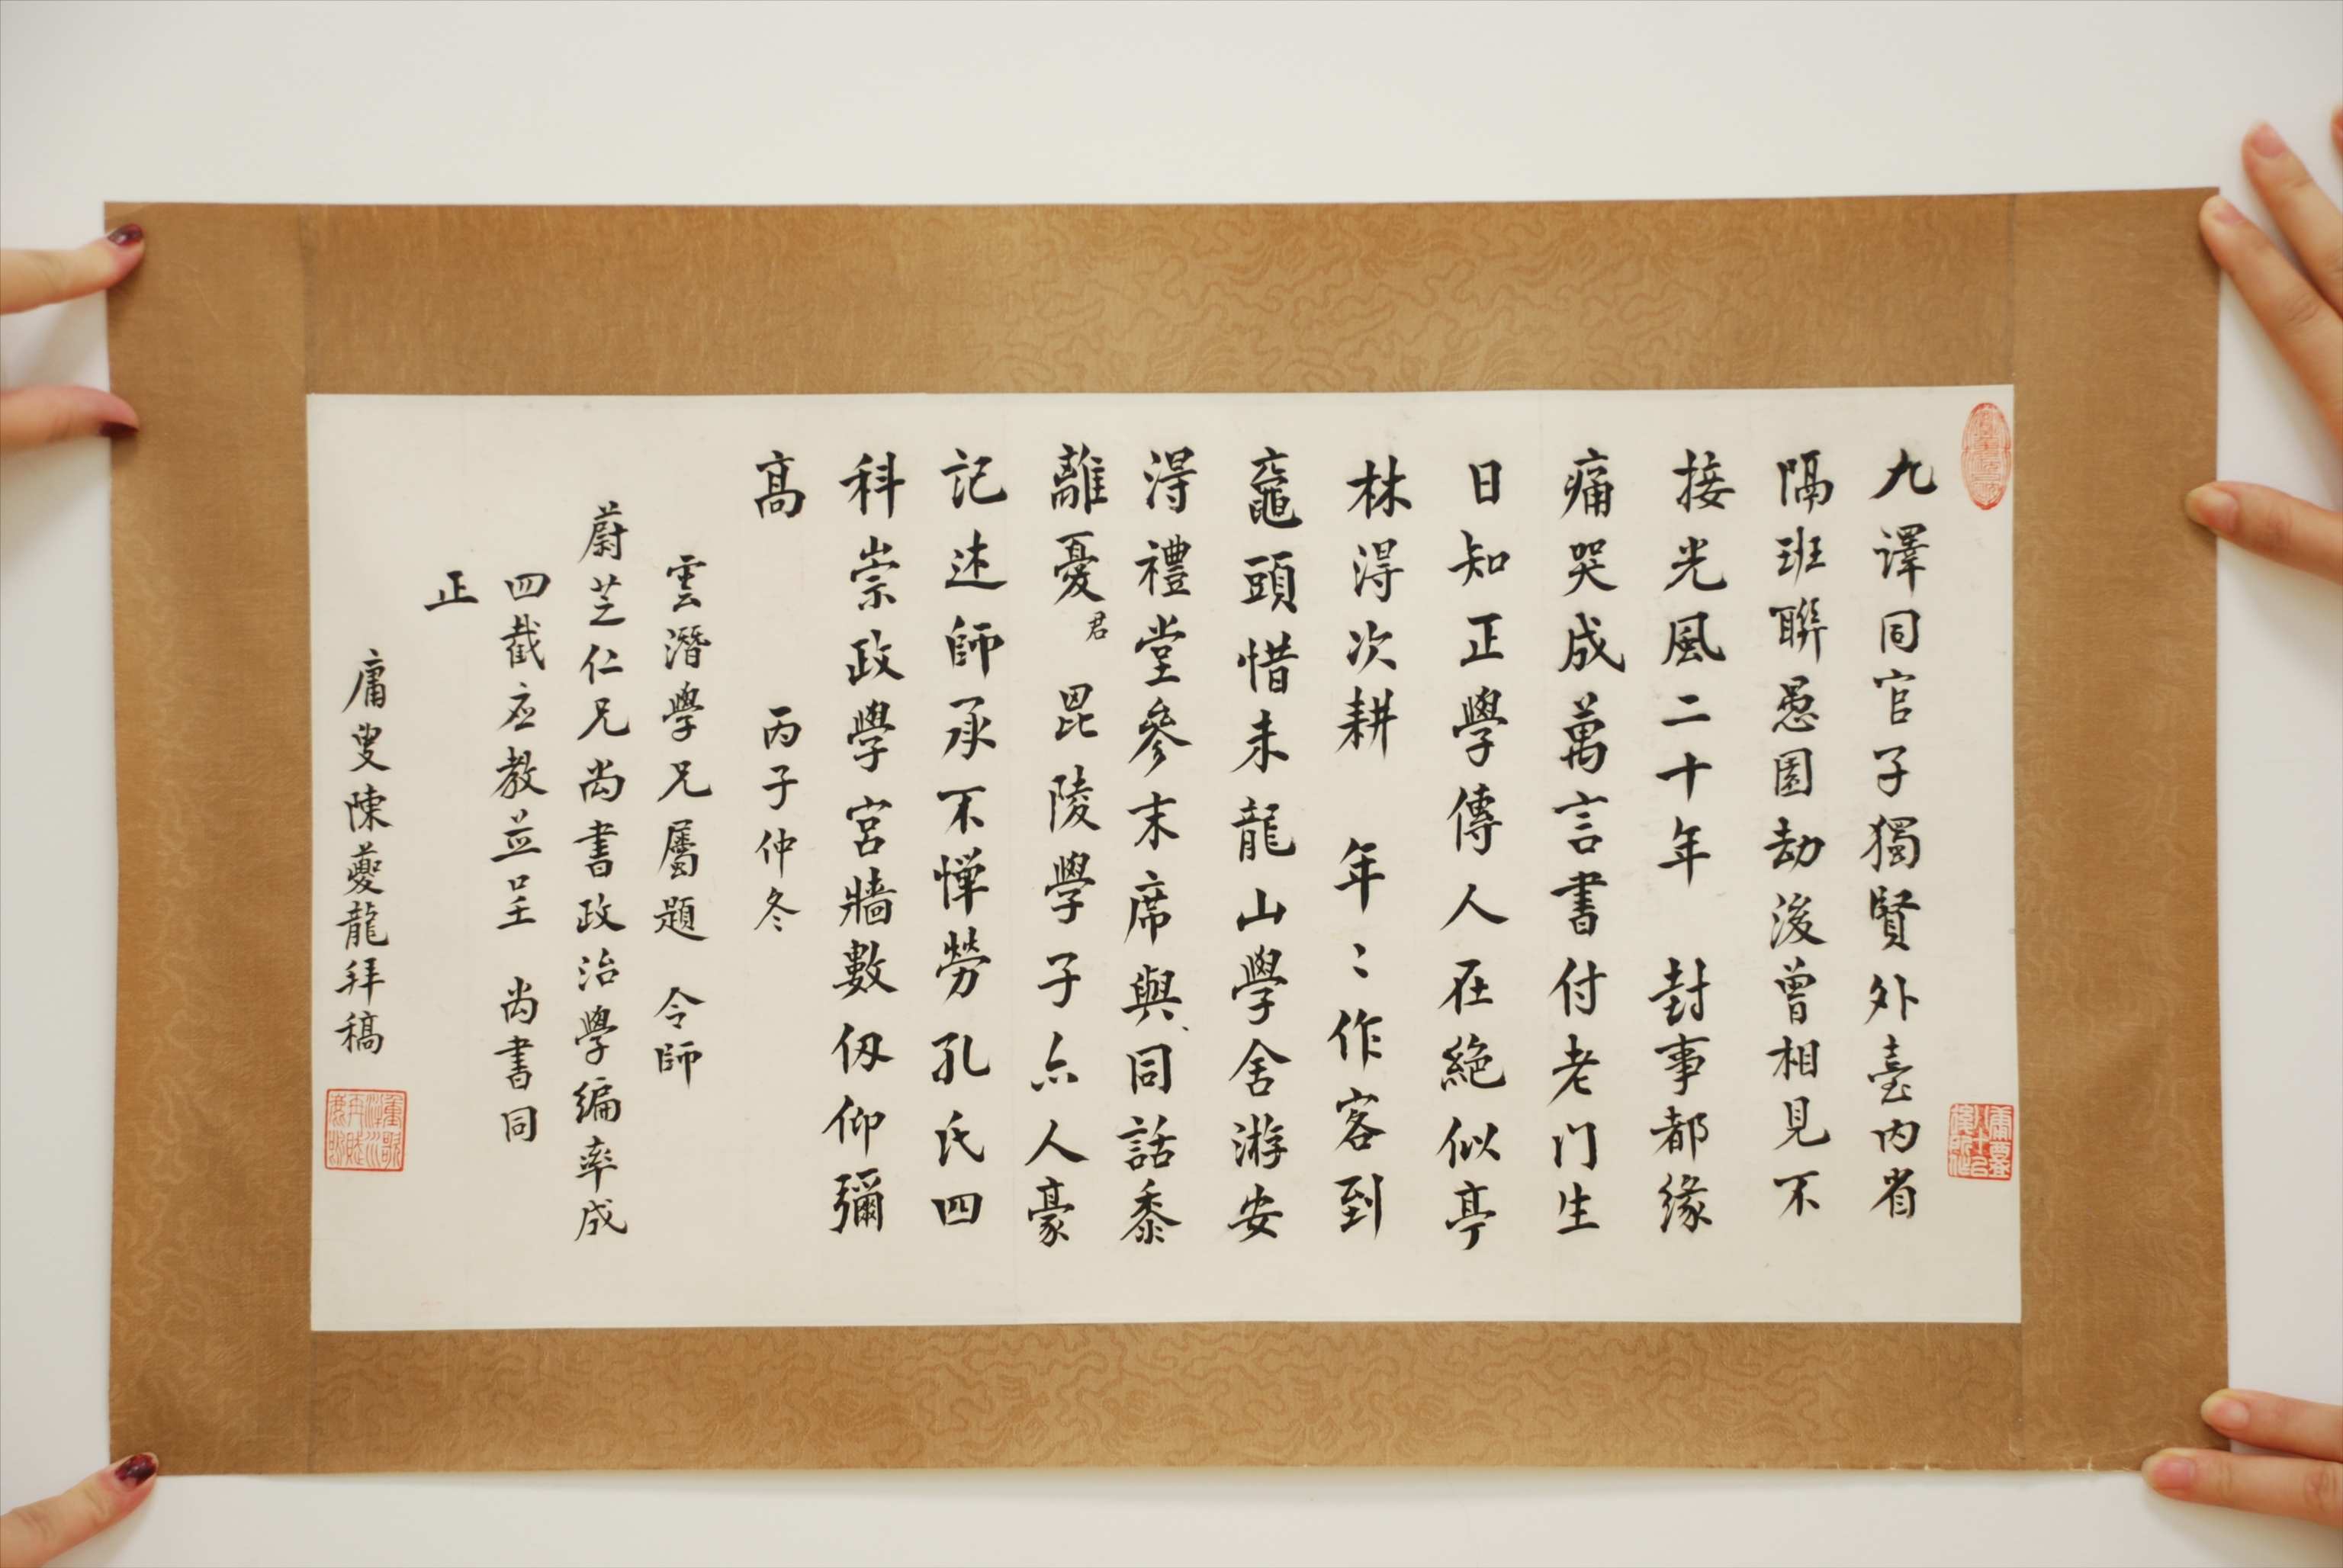 九譯同官子獨賢外臺內省
隔班聯愚園劫後曾相見不
接光風二十年 封事都緣
痛哭成萬言書付老門生
日知正學傳人在絕似亭
林得次耕 年〻作客到
黿頭惜未龍山學舍游安
得禮堂參末席與君同話黍
離憂 毘陵學子亦人豪
記述師承不憚勞孔氏四
科崇政學宮牆數仞仰彌
高 丙子仲冬
雲潛學兄屬題 令師
蔚芝仁兄尚書政治學編率成
四截應教並呈 尚書同
正
庸叟陳夔龍拜稿